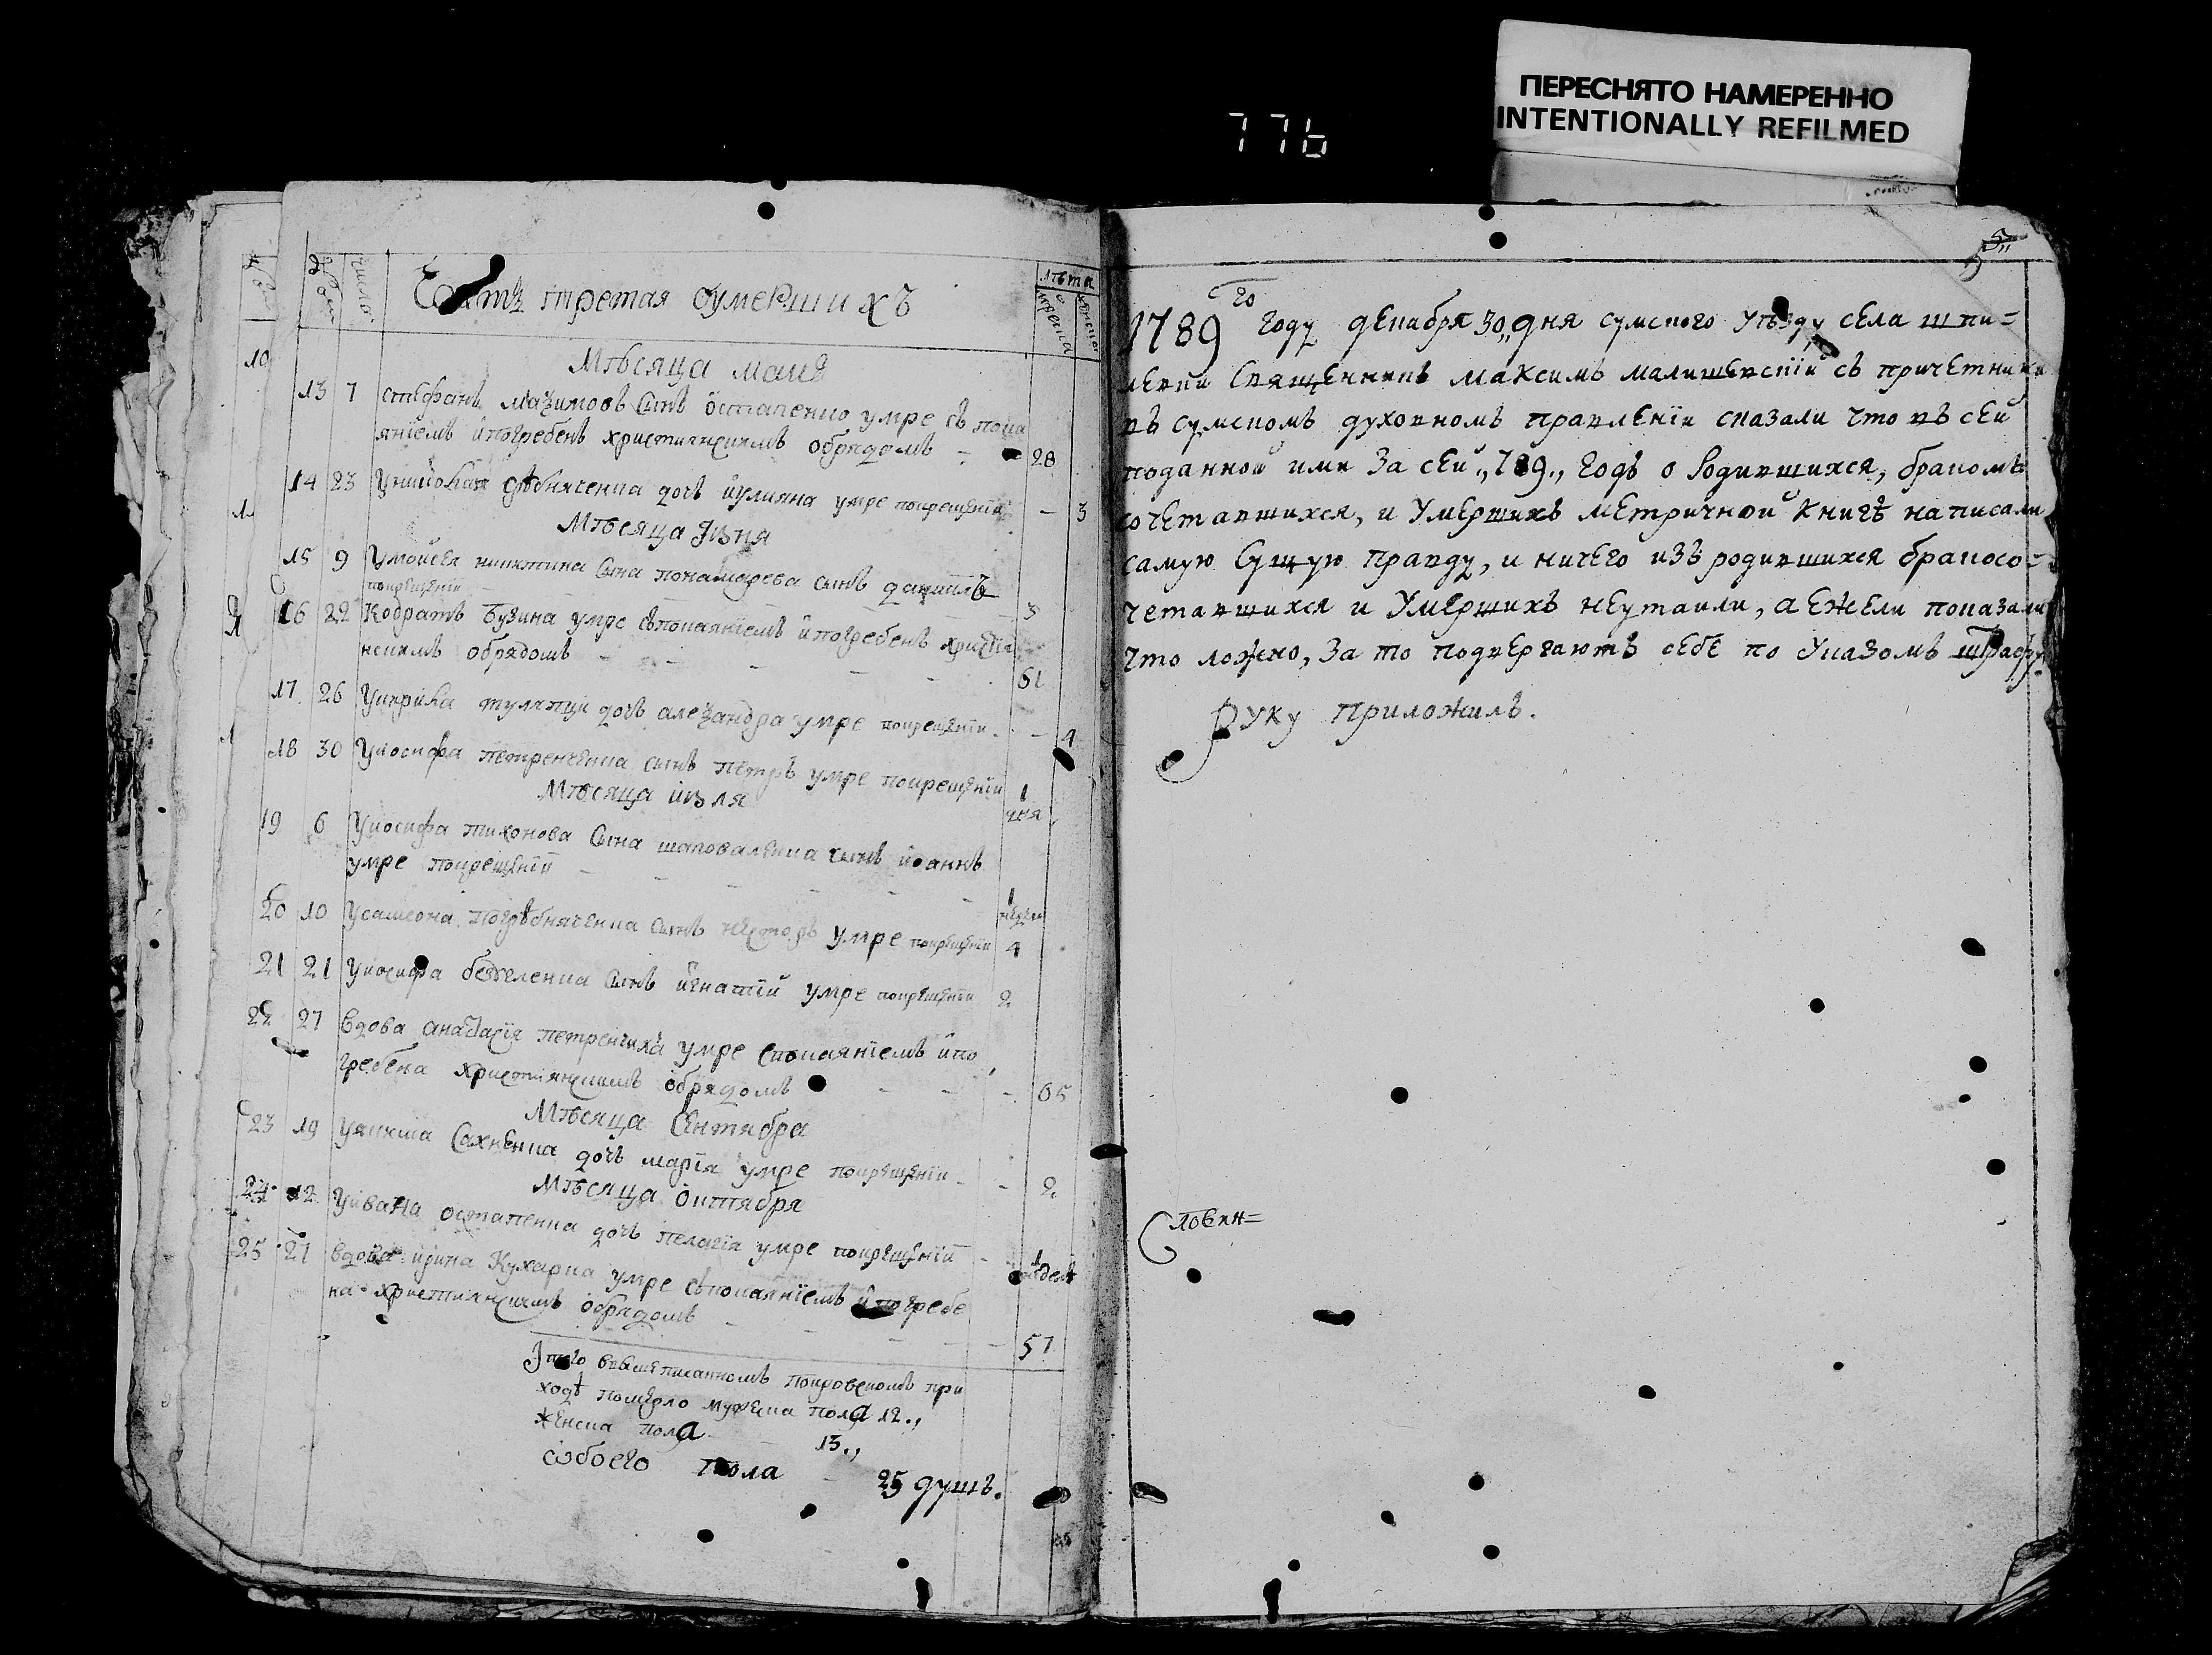 ПЕРЕСНЯТО НАМЕРЕННО
INTENTIONALLY REFILMED
776
число
лѣта
Часть третая оумершихъ
10
Мѣсяца маия
13 7 стефанъ мазимовъ сынъ остапенко умре съ пока
янїемъ и погребенъ християнскимъ обрядомъ - 28
14 23 дочь иулияна умре покрещенїи - 3
Мѣсяца июня
15 9 Умойсея никитина сына понамарева сынъ даниилъ
покрещенїи 3
16 22 Кодратъ бузина умре съпокаянїемъ и погребенъ христїа
нскимъ обрядомъ - - - - 61
17 26 дочь алеѯандра умре покрещенїи - - 4
18 30 Уиосифа петренченка сынъ петръ умре покрещенїи 1 дня
Мѣсяца июля
19 6 Уиосифа тихонова сына шаповаленка сынъ иоаннъ
умре покрещенїи - - - - - 1
20 10 Усамсона погрѣбняченка сынъ несторъ умре покрещенїи 4
21 21 Уиосифа сынъ игнатїй умре покрещенїи 2
22 27 вдова анастасїя петренчиха умре спокаянїемъ и по
гребена християнскимъ обрядомъ - - - 65
Мѣсяца Сентября
23 19 Уякима Сахненка дочь марїя умре покрещенїи - - 2
Мѣсяца октября
24 12 Уивана остапенка дочь пелагїя умре покрещенїи -
25 21 вдова ирина Кухарка умре съпокаянїемъ и погребе
на християнскимъ обрядомъ - - - - 57
Итого ввышеписанномъ покровскомъ при
ходѣ померло мужеска пола 12.,
женска пола 13.,
обоего пола 25 душъ.
1789го году декабря 30„ дня сумского уѣзду села шпи=
левки Священникъ Максимъ малишевскїй съ причетники
въ сумскомъ духовномъ правленїи сказали что въ сей
поданной ими За сей „789„ Годъ о Родившихся, бракомъ
сочетавшихся, и Умершихъ метричной Книгѣ написали
самую Сущую Правду, и ничего изъ родившихся бракосо=
четавшихся и Умершихъ неутаили, а ежели показали
что ложно, За то подвергаютъ себе по Указомъ штрафу.
Руку Приложилъ.
Словен=